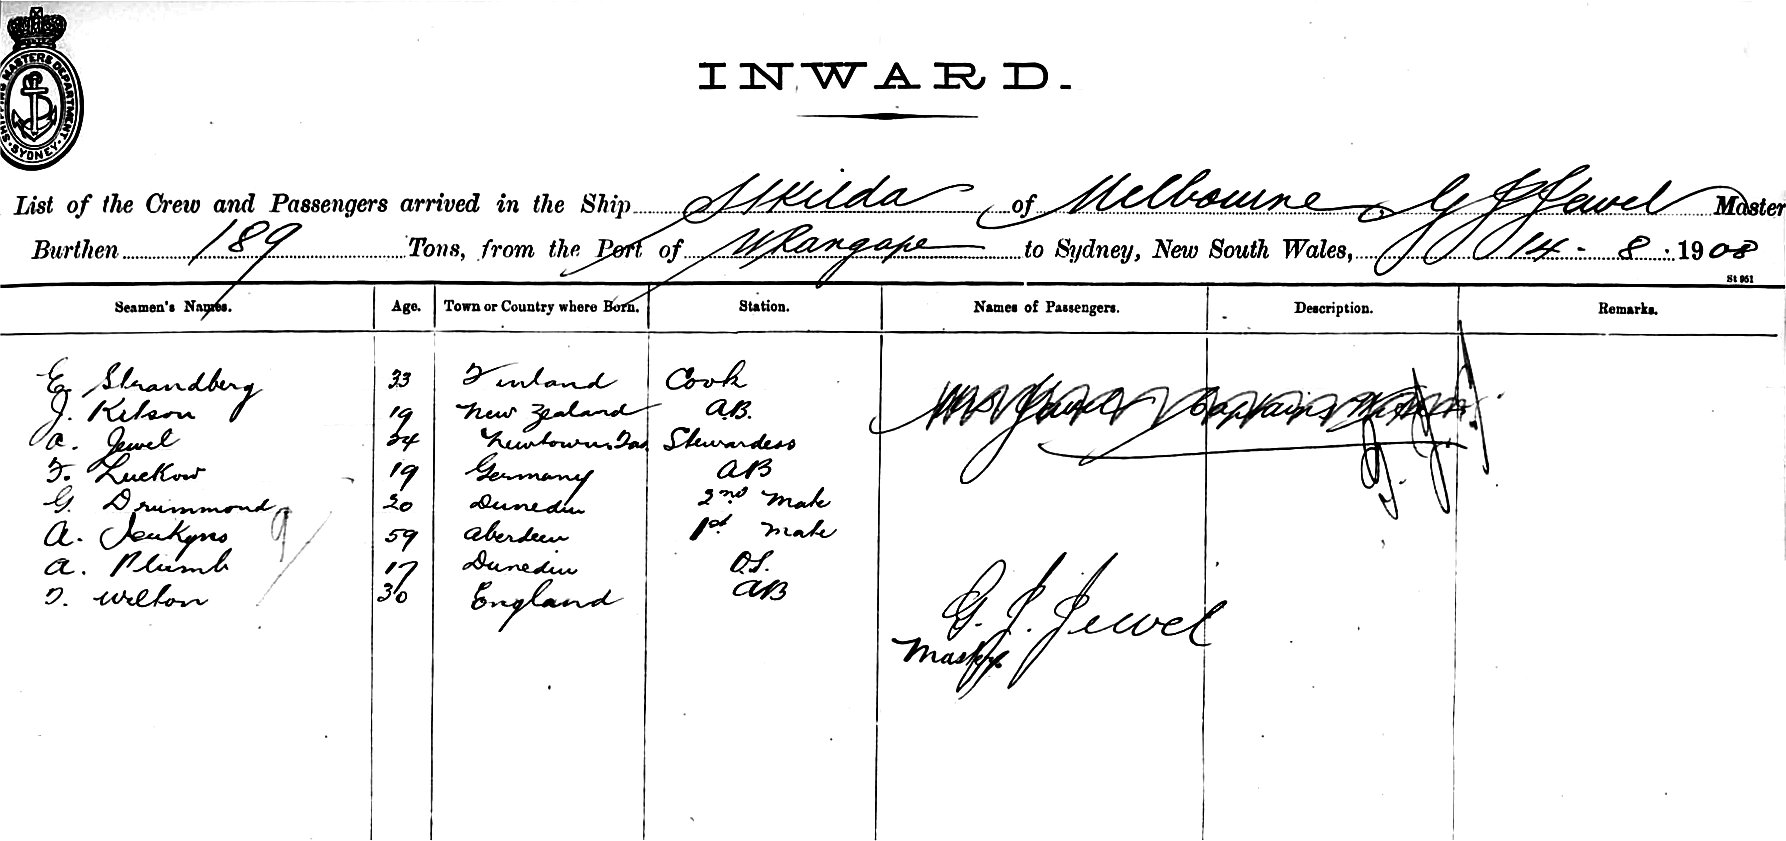 SHIPPING MASTERS DEPARTMENT · SYDNEY ·
INWARD.
List of the Crew and Passengers arrived in the Ship St Kilda of Melbourne, G J Jewel Master
Burthen 189 Tons, from the Port of Whangape to Sydney, New South Wales, 14 - 8 : 1908
St 951
Seamen's Names. Age. Town or Country where Born. Station. Names of Passengers. Description. Remarks.
E. Strandberg 33 Finland Cook
J. Kelson 19 New Zealand A.B. Mrs Jewel Captains Wife
A. Jewel 34 Newtown Tas Stewardess G. J. J.
F. Luckow 19 Germany AB
G. Drummond 20 Dunedin 2nd Mate
A. Jenkyns 59 Aberdeen 1st Mate
A. Plumb 17 Dunedin O.S.
T. Wilton 30 England AB
G. J. Jewel
Master